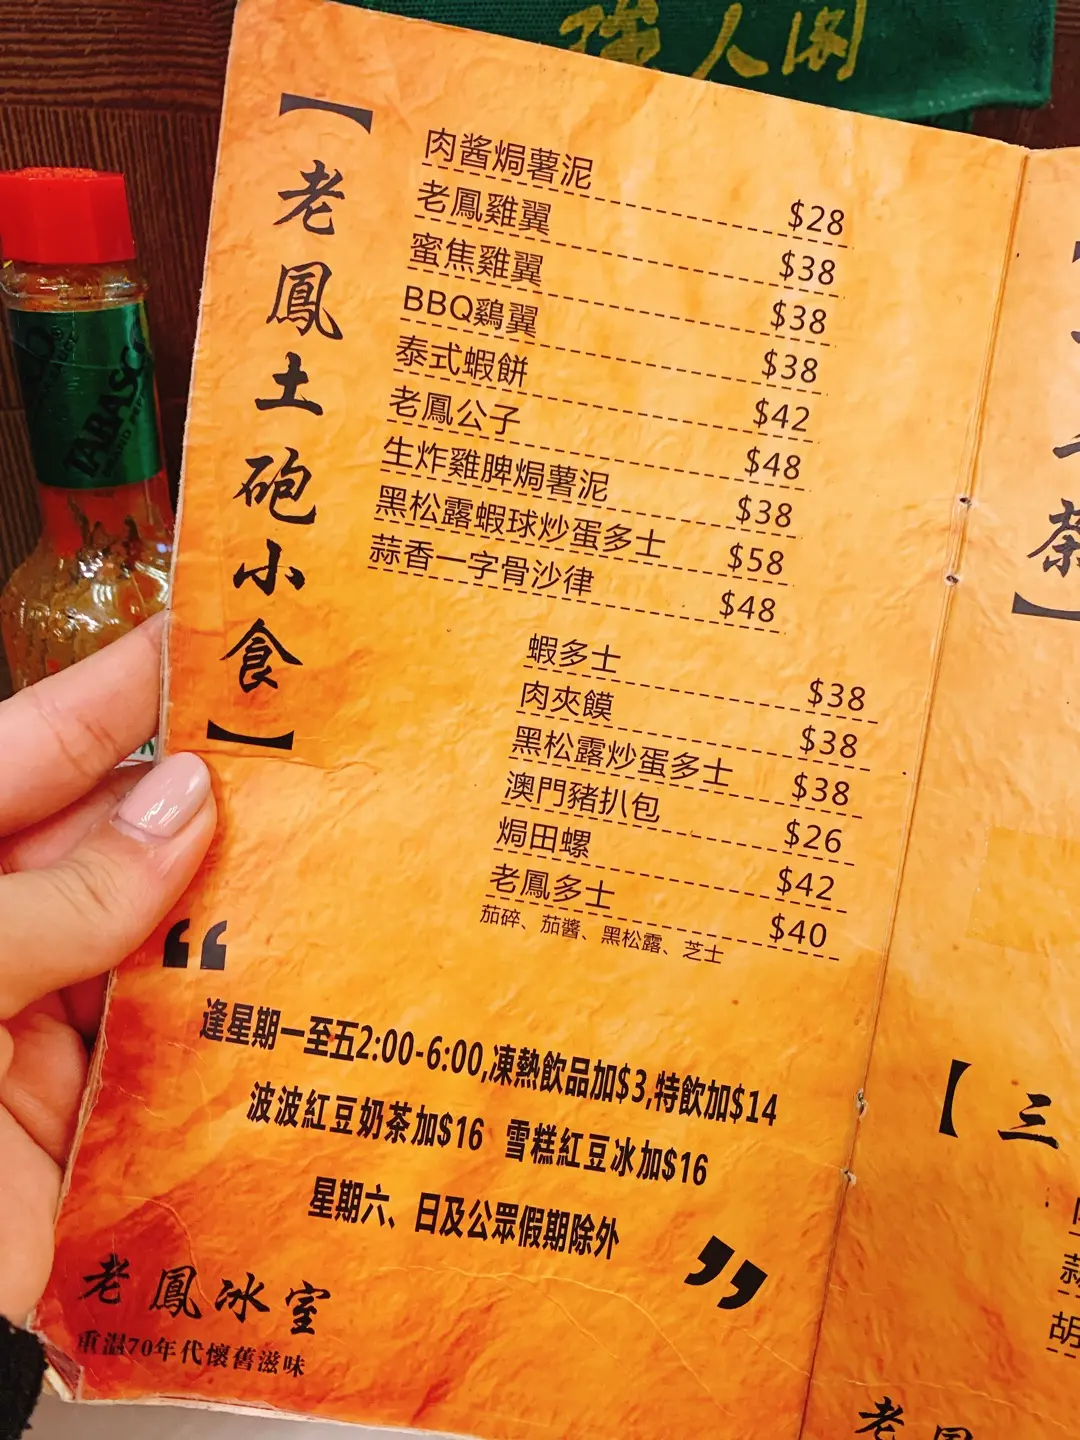 強人閣
TABASCO
【老鳳土砲小食】
肉酱焗薯泥 $28
老鳳雞翼 $38
蜜焦雞翼 $38
BBQ鷄翼 $38
泰式蝦餅 $42
老鳳公子 $48
生炸雞脾焗薯泥 $38
黑松露蝦球炒蛋多士 $58
蒜香一字骨沙律 $48
蝦多士 $38
肉夾饃 $38
黑松露炒蛋多士 $38
澳門豬扒包 $26
焗田螺 $42
老鳳多士 $40
茄碎、茄醬、黑松露、芝士
“
逢星期一至五2:00-6:00,凍熱飲品加$3,特飲加$14
波波紅豆奶茶加$16 雪糕紅豆冰加$16
星期六、日及公眾假期除外
”
老鳳冰室
重溫70年代懷舊滋味
茶】
【三
蒜
胡
老鳳